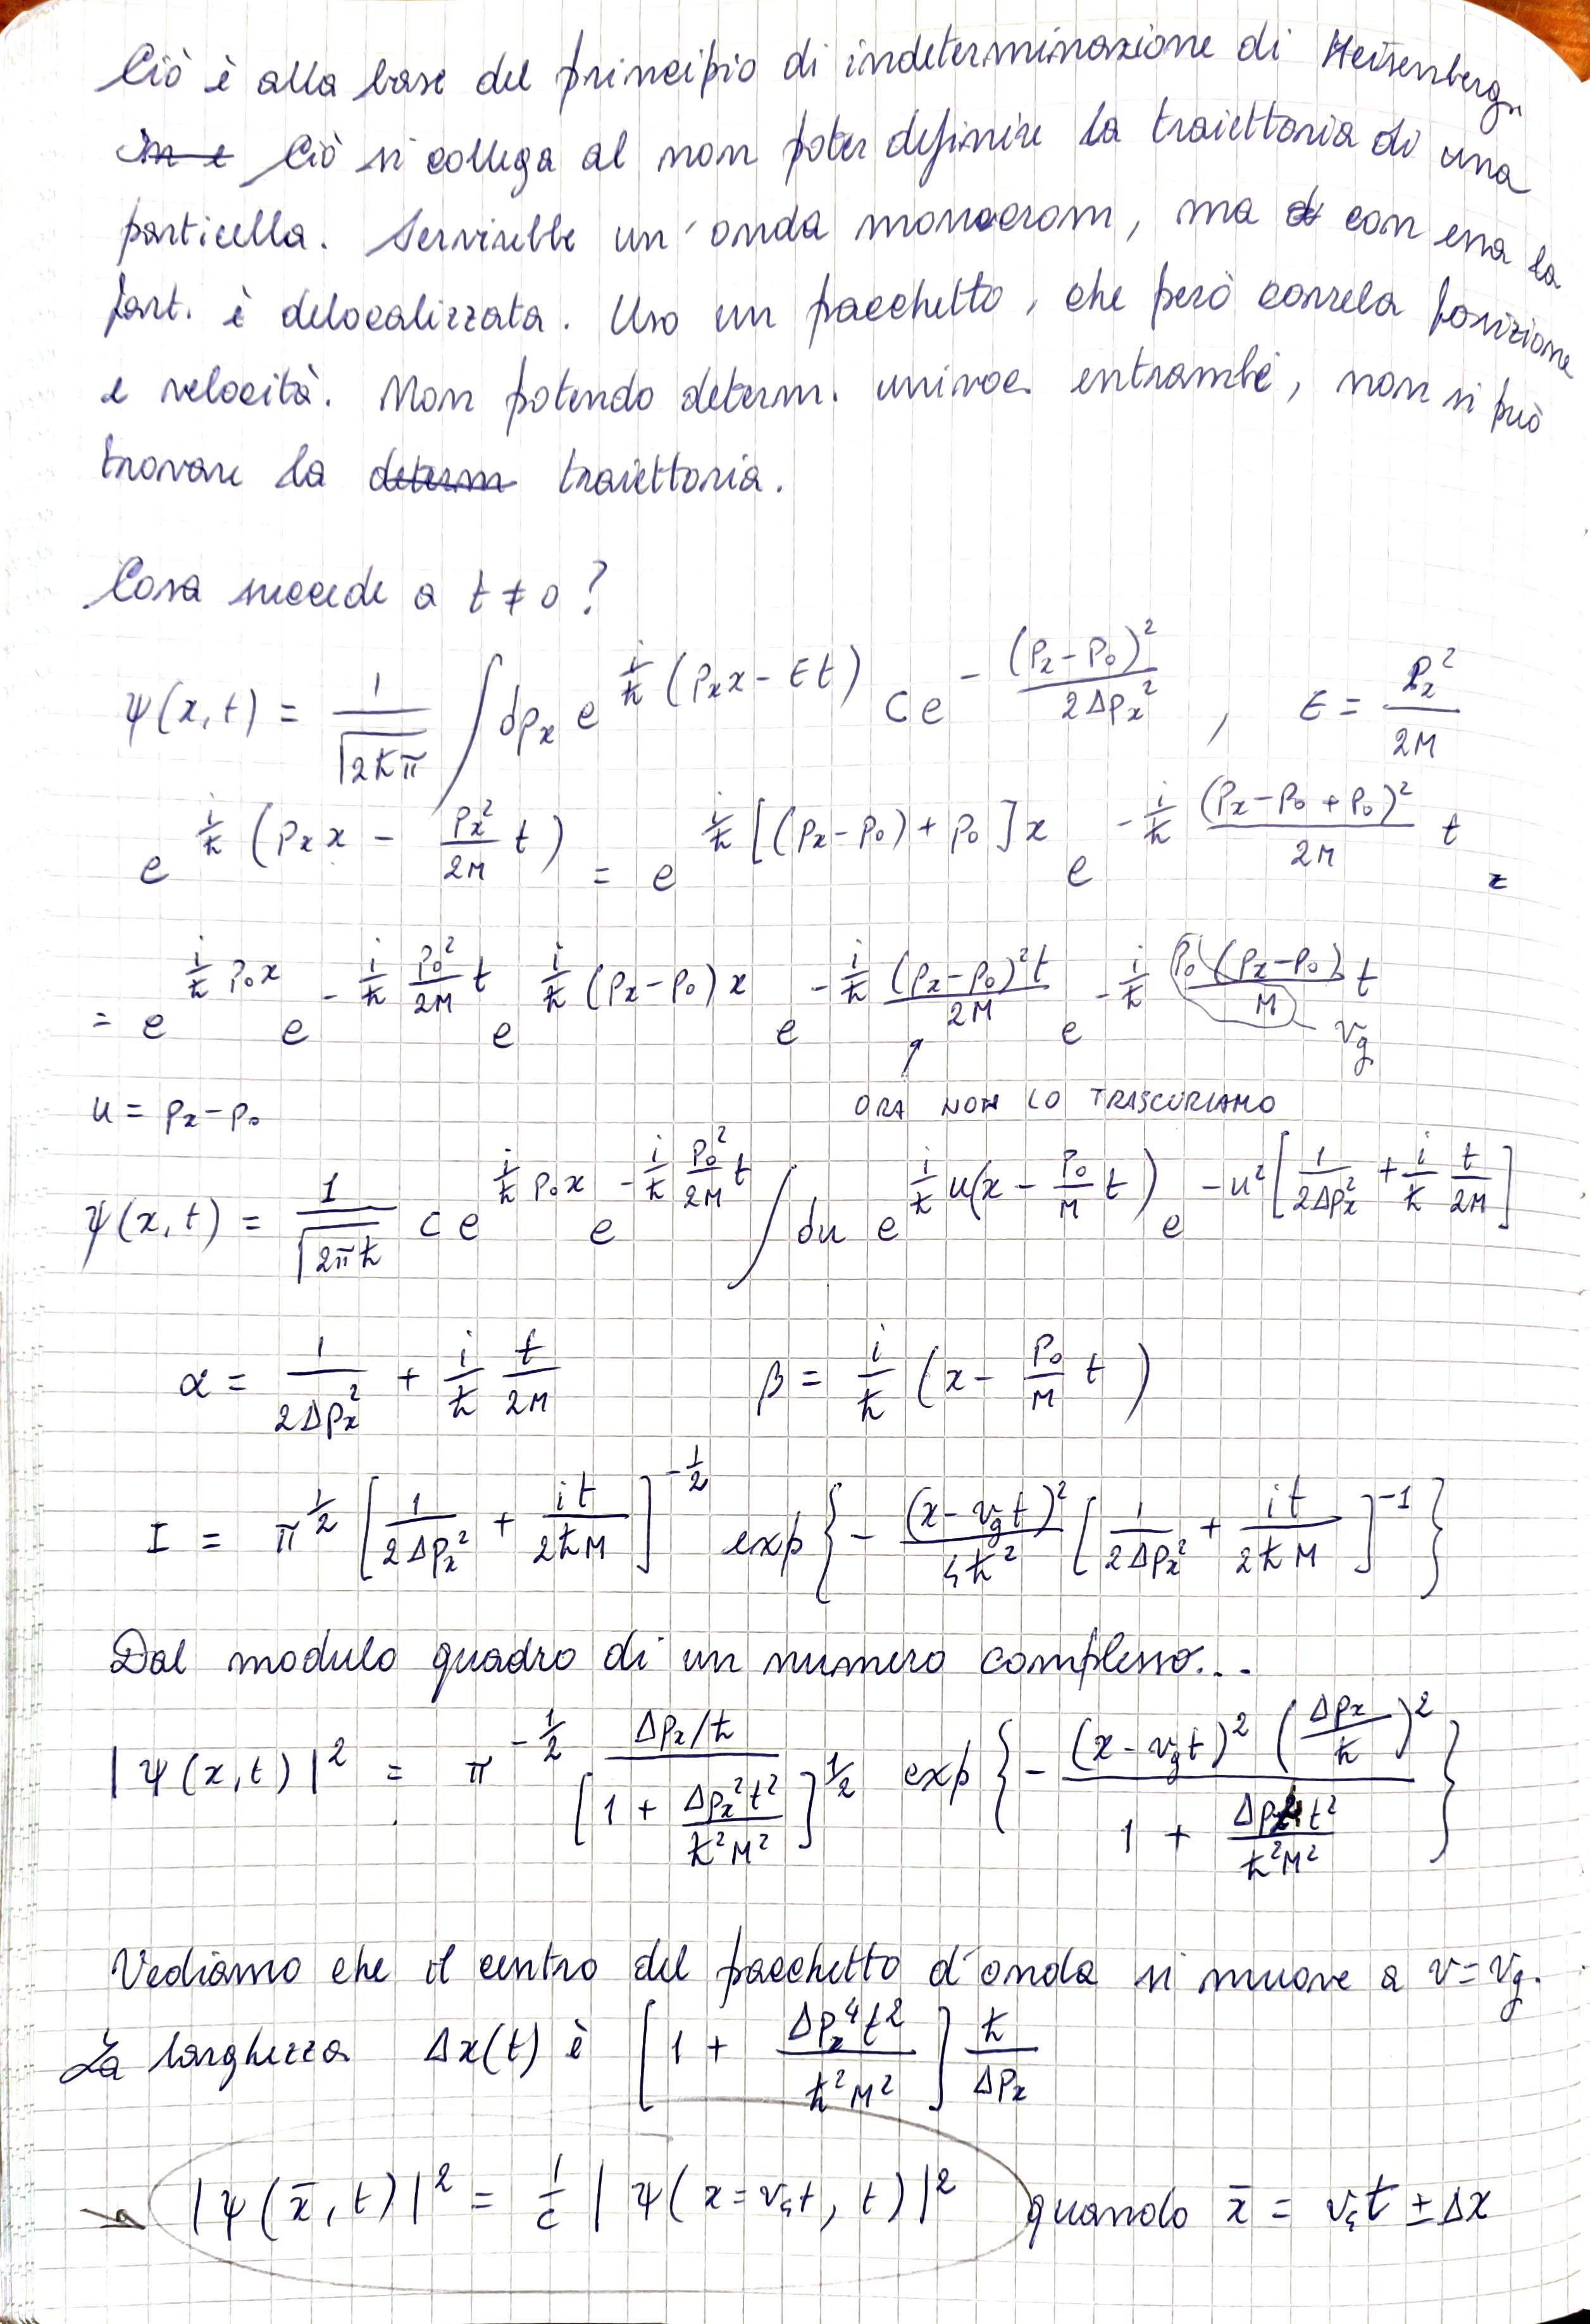 Ciò è alla base del principio di indeterminazione di Heisenberg.
Ciò si collega al non poter definire la traiettoria di una
particella. Servirebbe un'onda monocrom, ma con essa la
part. è delocalizzata. Uso un pacchetto, che però correla posizione
e velocità. Non potendo determ. univoc. entrambe, non si può
trovare la determ traiettoria.
Cosa succede a t ≠ 0?
ψ(x,t) = 1/√(2ħπ) ∫ dpₓ e^{i/ħ (pₓx - Et)} C e^{-(pₓ-p₀)²/(2Δpₓ²)} , E = pₓ²/2M
e^{i/ħ (pₓx - pₓ²/2M t)} = e^{i/ħ [(pₓ-p₀)+p₀]x} e^{-i/ħ (pₓ-p₀+p₀)²/2M t} =
= e^{i/ħ p₀x} e^{-i/ħ p₀²/2M t} e^{i/ħ (pₓ-p₀)x} e^{-i/ħ (pₓ-p₀)²t/2M} e^{-i/ħ p₀(pₓ-p₀)/M t} v_g
u = pₓ-p₀ ORA NON LO TRASCURIAMO
ψ(x,t) = 1/√(2πħ) C e^{i/ħ p₀x} e^{-i/ħ p₀²/2M t} ∫ du e^{i/ħ u(x - p₀/M t)} e^{-u² [1/(2Δpₓ²) + i/ħ t/2M]}
α = 1/(2Δpₓ²) + i/ħ t/2M β = i/ħ (x - p₀/M t)
I = π^{1/2} [1/(2Δpₓ²) + it/(2ħM)]^{-1/2} exp{- (x-v_g t)²/(4ħ²) [1/(2Δpₓ²) + it/(2ħM)]^{-1}}
Dal modulo quadro di un numero complesso...
|ψ(x,t)|² = π^{-1/2} (Δpₓ/ħ)/[1 + Δpₓ²t²/(ħ²M²)]^{1/2} exp{- (x-v_g t)² (Δpₓ/ħ)²/(1 + Δpₓ⁴t²/(ħ²M²))}
Vediamo che il centro del pacchetto d'onda si muove a v=v_g.
La larghezza Δx(t) è [1 + Δpₓ⁴t²/(ħ²M²)] ħ/Δpₓ
→ |ψ(x̄,t)|² = 1/e |ψ(x=v_g t, t)|² quando x̄ = v_g t ± Δx